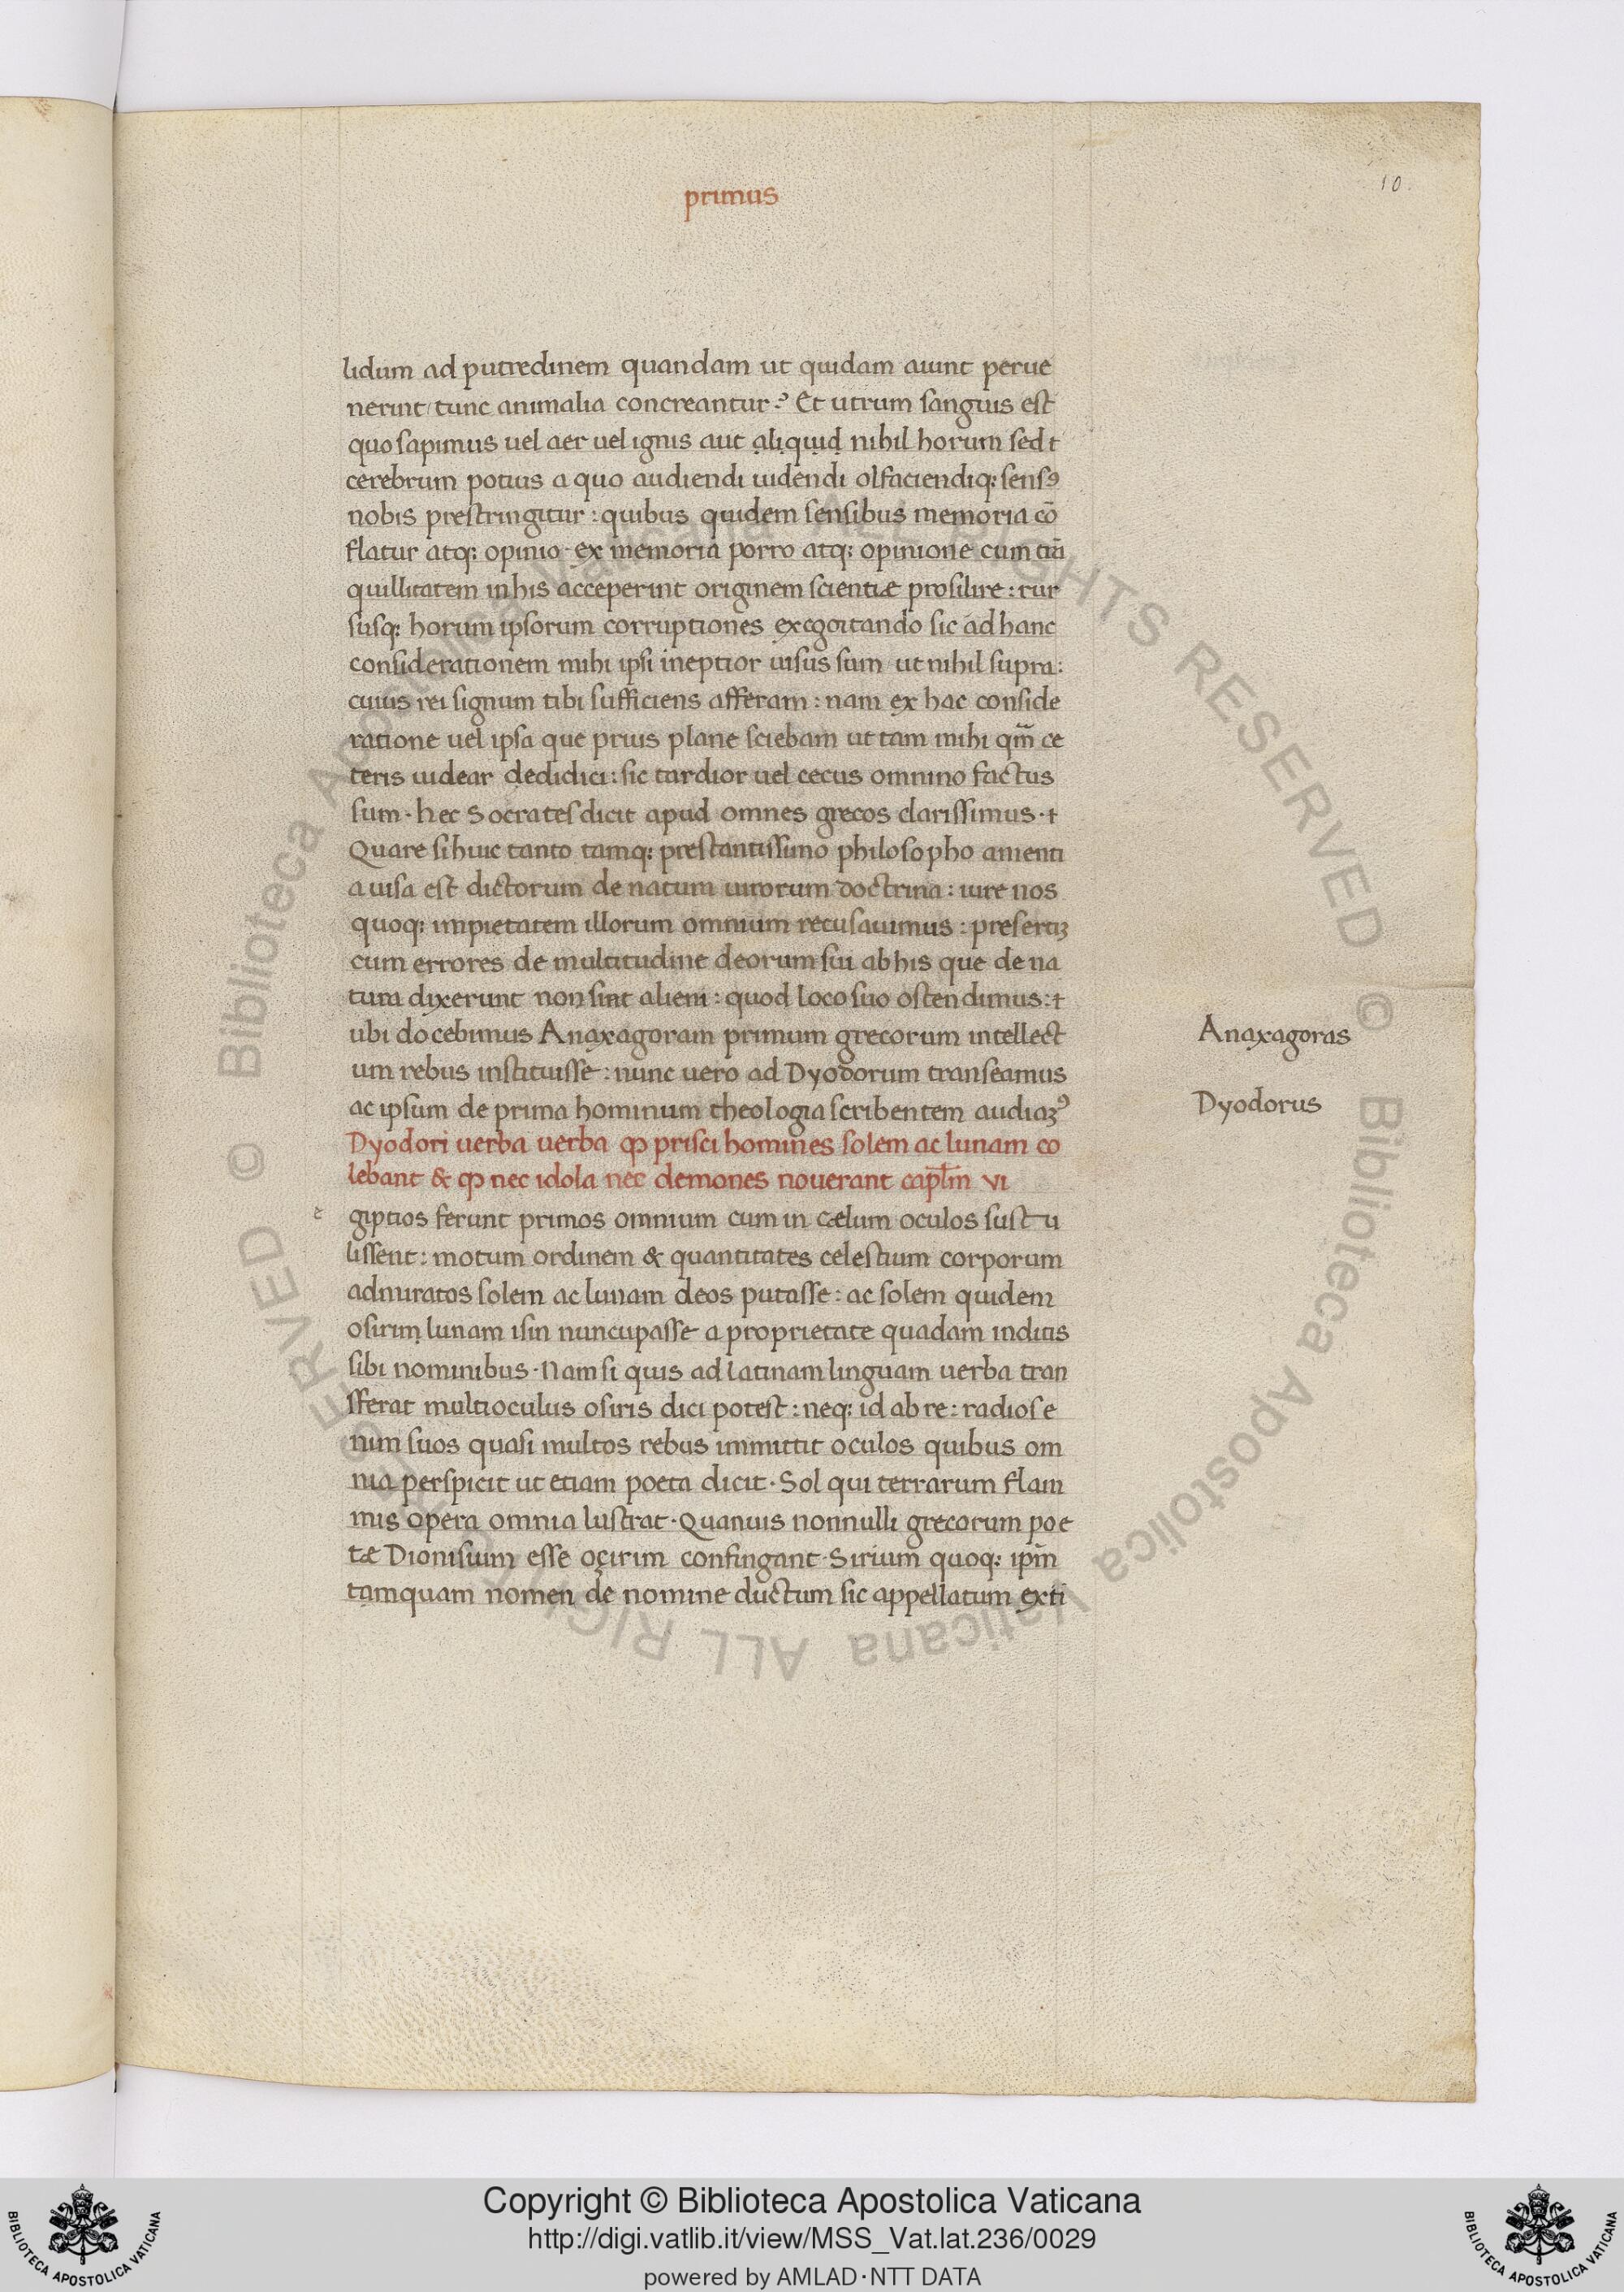 primus
10.
lidum ad putredinem quandam ut quidam aiunt perue
nerint/ tunc animalia concreantur? Et utrum sanguis est
quo sapimus uel aer uel ignis aut aliquid nihil horum sed t
cerebrum potius a quo audiendi uidendi olfaciendiq: sensꝰ
nobis prestringitur: quibus quidem sensibus memoria cō
flatur atq: opinio· ex memoria porro atq: opinione cum trā
quillitatem in his acceperint originem scientiæ prosilire: rur
susq: horum ipsorum corruptiones excogitando sic ad hanc
considerationem mihi ipsi ineptior uisus sum ut nihil supra:
cuius rei signum tibi sufficiens afferam: nam ex hac conside
ratione uel ipsa que prius plane sciebam ut tam mihi qm̄ ce
teris uidear dedidici: sic tardior uel cecus omnino factus
sum· hec Socrates dicit apud omnes grecos clarissimus· t
Quare si huic tanto tamq: prestantissimo philosopho amenti
a uisa est dictorum de natum uirorum doctrina: iure nos
quoq: impietatem illorum omnium recusauimus: presertiꝫ
cum errores de multitudine deorum sui ab his que de na
tura dixerunt non sint alieni: quod loco suo ostendimus: t
ubi docebimus Anaxagoram primum grecorum intellect
um rebus instituisse: nunc uero ad Dyodorum transeamus
ac ipsum de prima hominum theologia scribentem audiaꝫꝰ
Anaxagoras
Dyodorus
Dyodori uerba uerba ꝙ prisci homines solem ac lunam co
lebant & ꝙ nec idola nec demones nouerant capl̄m vi
e giptios ferunt primos omnium cum in cælum oculos sustu
lissent: motum ordinem & quantitates celestium corporum
admiratos solem ac lunam deos putasse: ac solem quidem
osirim lunam isin nuncupasse a proprietate quadam inditis
sibi nominibus· Nam si quis ad latinam linguam uerba tran
sferat multioculus osiris dici potest: neq: id ab re: radios e
nim suos quasi multos rebus immittit oculos quibus om
nia perspicit ut etiam poeta dicit· Sol qui terrarum flam
mis opera omnia lustrat· Quanuis nonnulli grecorum poe
tæ Dionisium esse oçirim confingant· Sirium quoq: ipm̄
tamquam nomen de nomine ductum sic appellatum exti
Copyright © Biblioteca Apostolica Vaticana
http://digi.vatlib.it/view/MSS_Vat.lat.236/0029
powered by AMLAD·NTT DATA
BIBLIOTECA APOSTOLICA VATICANA
BIBLIOTECA APOSTOLICA VATICANA
© Biblioteca Apostolica Vaticana ALL RIGHTS RESERVED © Biblioteca Apostolica Vaticana ALL RIGHTS RESERVED